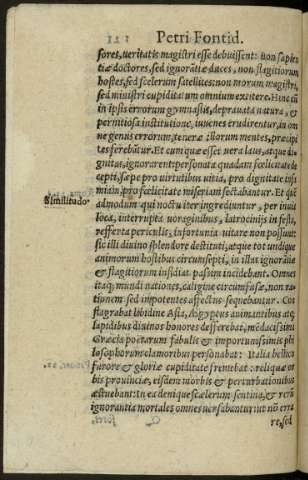 Petri Fontid.
sores, ueritatis magistri esse debuissent: non sapien
tiæ doctores, sed ignorãtiæ duces, non flagitiorum
hostes, sed scelerum satellites: non morum magistri,
sed ministri cupiditatum omnium extitere. Hinc cũ
in ipsis errorum gymnasijs, deprauata natura, et
pernitiosa institutione, iuuenes erudirentur, in om
ne genus errorum, teneræ illorum mentes, præcipi
tes ferebãtur. Et cum quæ esset uera laus, atque di-
gnitas, ignorarent: personata quadam fœlicitate de
cepti, sæpe pro uirtutibus uitia, pro dignitate infa
miam, pro fœlicitate miseriam sectabantur. Et quẽ
Similitudo
admodum qui noctu iter ingrediuntur, per inuia
loca, interrupta uoraginibus, latrocinijs in festa,
refferta periculis, infortunia uitare non possunt:
sic illi diuino splendore destituti, atque tot undique
animorum hostibus circumsepti, in illas ignorãtiæ
et flagitiorum insidias passim incidebant. Omnes
itaq; mundi nationes, caligine circumfusæ, non ra
tionem sed impotentes affectus sequebantur.
flagrabat libidine Asia, Ægyptus animantibus atq;
lapidibus diuinos honores defferebat, mẽdacissimis
Græcia poëtarum fabulis et importunissimis phi
losophorum clamoribus personabat: Italia bellico
furore et gloriæ cupiditate fremebat: reliquæ or
bis prouinciæ, eisdem morbis et perturbationibus
æstuebant: In ea denique scælerum sentina, et rerũ
ignorantia mortales omnes uersabantur, ut nõ erra
re, sed